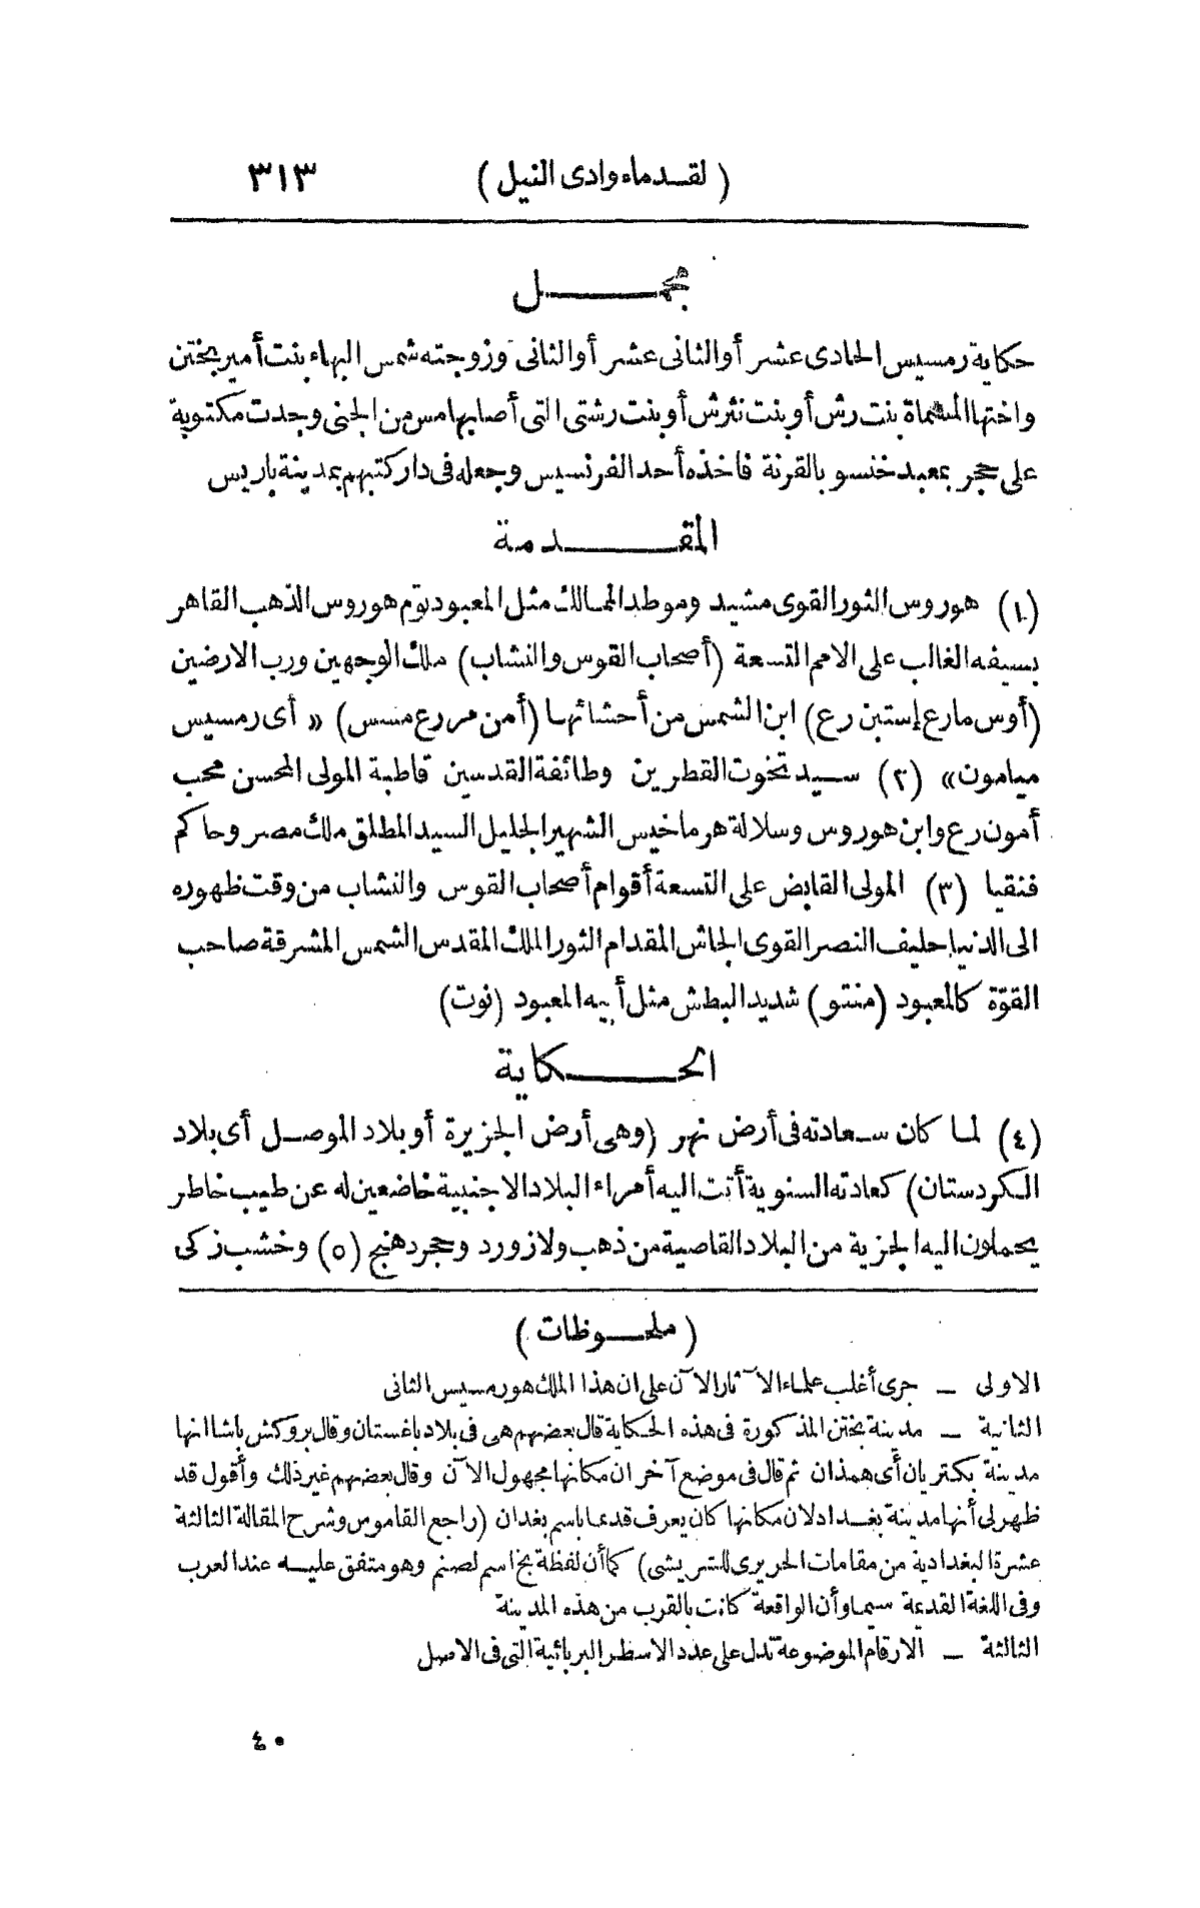 (لقدماء وادى النيل) ٣١٣
مجمل
حكاية رمسيس الحادى عشر أو الثانى عشر أو الثانى وزوجته شمس البهاء بنت أمير بختن
واختها المسماة بنت رش أو بنت نثرش أو بنت رشتى التى أصابها مس من الجنى وجدت مكتوبة
على حجر بمعبد خنسو بالقرنة فاخذه أحد الفرنسيس وجعله فى دار كتبهم بمدينة باريس
المقدمة
(١) هوروس الثور القوى مشيد وموطد الممالك مثل المعبود توم هوروس الذهب القاهر
بسيفه الغالب على الامم التسعة (أصحاب القوس والنشاب) ملك الوجهين ورب الارضين
(أوس مارع إستبن رع) ابن الشمس من أحشائها (أمن مررع مسس) «أى رمسيس
ميامون» (٢) سيد تخوت القطرين وطائفة القدسين قاطبة المولى المحسن محب
أمون رع وابن هوروس وسلالة هرماخيس الشهير الجليل السيد المطلق ملك مصر وحاكم
فنقيا (٣) المولى القابض على التسعة أقوام أصحاب القوس والنشاب من وقت ظهوره
الى الدنيا حليف النصر القوى الجاش المقدام الثور الملك المقدس الشمس المشرقة صاحب
القوّة كالمعبود (منتو) شديد البطش مثل أبيه المعبود (نوت)
الحكاية
(٤) لما كان سعادته فى أرض نهر (وهى أرض الجزيرة أو بلاد الموصل أى بلاد
الكردستان) كعادته السنوية أتت اليه أمراء البلاد الاجنبية خاضعين له عن طيب خاطر
يحملون اليه الجزية من البلاد القاصية من ذهب ولازورد وحجر دهنج (٥) وخشب زكى
(ملحوظات)
الاولى ـ جرى أغلب علماء الآثار الآن على ان هذا الملك هو رمسيس الثانى
الثانية ـ مدينة بختن المذكورة فى هذه الحكاية قال بعضهم هى فى بلاد باغستان وقال بروكش باشا انها
مدينة بكتريان أى همذان ثم قال فى موضع آخر ان مكانها مجهول الآن وقال بعضهم غير ذلك وأقول قد
ظهر لى أنها مدينة بغداد لان مكانها كان يعرف قدعا باسم بغدان (راجع القاموس وشرح المقالة الثالثة
عشرة البغدادية من مقامات الحريرى للشريشى) كما أن لفظة بخ اسم لصنم وهو متفق عليه عند العرب
وفى اللغة القدعة سيما وأن الواقعة كانت بالقرب من هذه المدينة
الثالثة ـ الارقام الموضوعة تدل على عدد الاسطر البربائية التى فى الاصل
٤٠